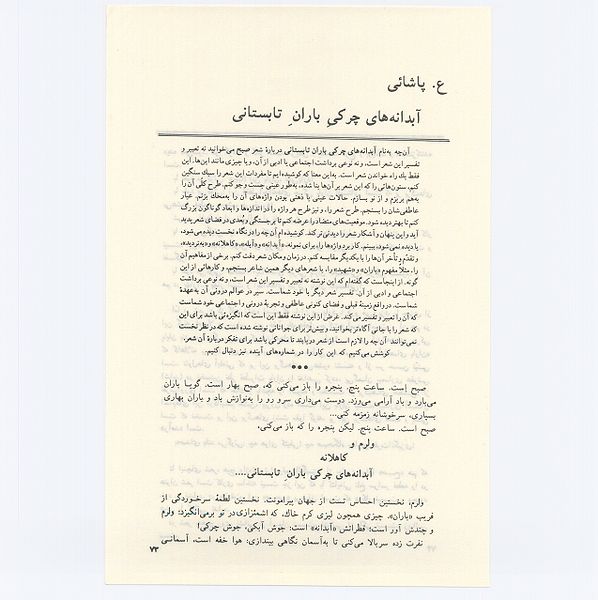 ع. پاشائی
آبدانه‌های چرکیِ بارانِ تابستانی
آن‌چه به‌نام آبدانه‌های چرکی باران تابستانی دربارهٔ شعر صبح می‌خوانید نه تعبیر و
تفسیر این شعر است، و نه نوعی برداشت اجتماعی یا ادبی از آن، و یا چیزی مانند این‌ها. این
فقط یك راه خواندن شعر است. به‌این معنا که کوشیده‌ایم تا مفردات این شعر را سبك سنگین
کنم، ستون‌هائی را که این شعر بر آن‌ها بنا شده، به‌طور عینی جست و جو کنم. طرح کلی آن را
به‌هم بریزم و از نو بسازم. حالات عینی یا ذهنی بودن واژه‌های آن را به‌محك بزنم. عیار
عاطفی‌شان را بسنجم. طرح شعر را، و نیز طرح هر واژه را در اندازه‌ها و ابعاد گوناگون بزرگ
کنم تا بهتر دیده شود. موقعیت‌های متضاد را عرضه کنم تا برجستگی و بُعدی در فضای شعر پدید
آید و این پنهان و آشکار شعر را دیدنی‌تر کند. کوشیده‌ام آن‌چه را در نگاه نخست دیده می‌شود،
یا دیده نمی‌شود، ببینم. کاربرد واژه‌ها را، برای نمونه، «آبدانه» و «آبله»، «کاهلانه» و «به‌تردید»،
و تقدّم و تأخر آن‌ها را با یکدیگر مقایسه کنم. در زمان و مکان شعر دقت کنم. برخی از مفاهیم آن
را، مثلاً مفهوم «باران» و «شهید»، را، با شعرهای دیگر همین شاعر بسنجم، و کارهائی از این
گونه. از اینجاست که گفته‌ام که این نوشته نه تعبیر و تفسیر این شعر است، و نه نوعی برداشت
اجتماعی و ادبی از آن. تفسیر شعر دیگر با خود شماست. سیر در عوالم درونی آن به‌عهدهٔ
شماست. در واقع زمینهٔ قبلی و فضای کنونی عاطفی و تجربهٔ درونی و اجتماعی خود شماست
که آن را تعبیر و تفسیر می‌کند. غرض از این نوشته فقط این است که انگیزه‌ئی باشد برای این
که شعر را با جانی آگاه‌تر بخوانید، و بیش‌تر برای جوانانی نوشته شده است که در نظر نخست
نمی‌توانند آن چه را لازم است از شعر دریابند تا محرکی باشد برای تفکر دربارهٔ آن شعر.
کوشش می‌کنیم که این کار را در شماره‌های آینده نیز دنبال کنیم.
•••
صبح است. ساعت پنج. پنجره را باز می‌کنی که، صبح بهار است. گویـا باران
می‌بارد و باد آرامی می‌وزد. دوست می‌داری سرو رو را به‌نوازش بادِ و باران بهاری
بسپاری، سرخوشانه زمزمه کنی...
صبح است. ساعت پنج. لیکن پنجره را که باز می‌کنی،
ولرم و
کاهلانه
آبدانه‌های چرکیِ بارانِ تابستانی....
ولرم، نخستین احساس تست از جهان پیرامونت. نخستین لطمهٔ سرخوردگی از
فریبِ «باران». چیزی همچون لیزی کرم خاك، که اشمئزازی در تو برمی‌انگیزد: ولرم
و چندش آور است؛ قطراتش «آبدانه» است: جوش آبکی، جوش چرکی!
نفرت زده سربالا می‌کنی تا به‌آسمان نگاهی بیندازی. هوا خفه است، آسمانـی
۷۳